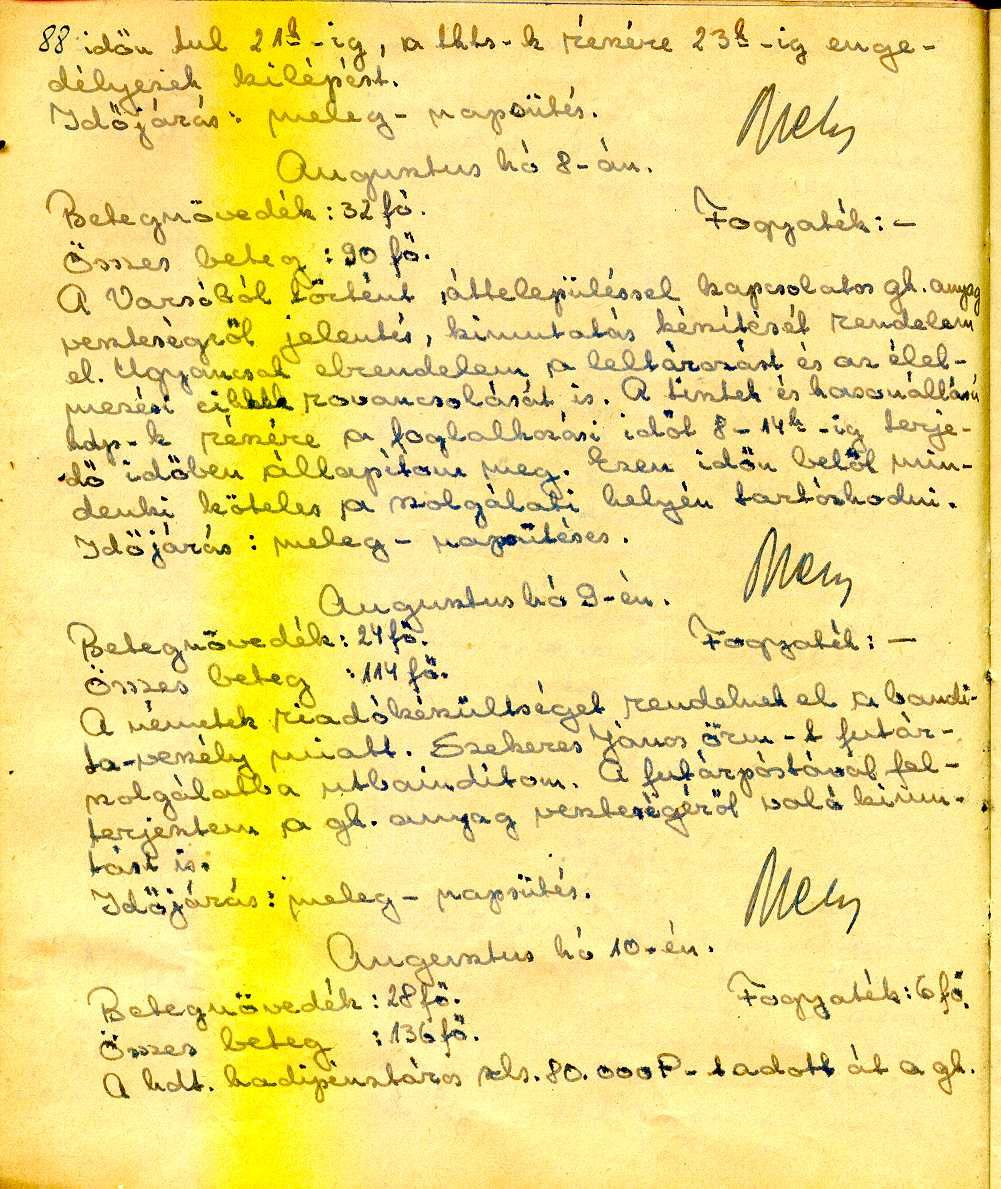 88 időn tul 21h-ig, a thts-k részére 23h-ig enge-
délyezek kilépést.
Időjárás: meleg - napsütés.
Augusztus hó 8-án.
Betegnövedék: 32 fő. Fogyaték: -
Összes beteg : 90 fő.
A Varsóból történt áttelepüléssel kapcsolatos gh. anyag
veszteségről jelentés, kimutatás készítését rendelem
el. Ugyancsak elrendelem a leltározást és az élel-
mezési cikkek rovancsolását is. A tisztek és hasonállású
hdp-k részére a foglalkozási időt 8-14h-ig terje-
dő időben állapítom meg. Ezen időn belől min-
denki köteles a szolgálati helyén tartózkodni.
Időjárás: meleg - napsütéses.
Augusztus hó 9-én.
Betegnövedék: 24 fő. Fogyaték: -
Összes beteg : 114 fő.
A németek riadókészültséget rendelnek el a bandi-
ta-veszély miatt. Szekeres János őrm-t futár-
szolgálatba utbaindítom. A futárpóstával fel-
terjesztem a gh. anyag veszteségéről való kimu-
tást is.
Időjárás: meleg - napsütés.
Augusztus hó 10-én.
Betegnövedék: 28 fő. Fogyaték: 6 fő.
Összes beteg : 136 fő.
A hdt. hadipénztáros zls. 80.000 P- tadott át a gh.